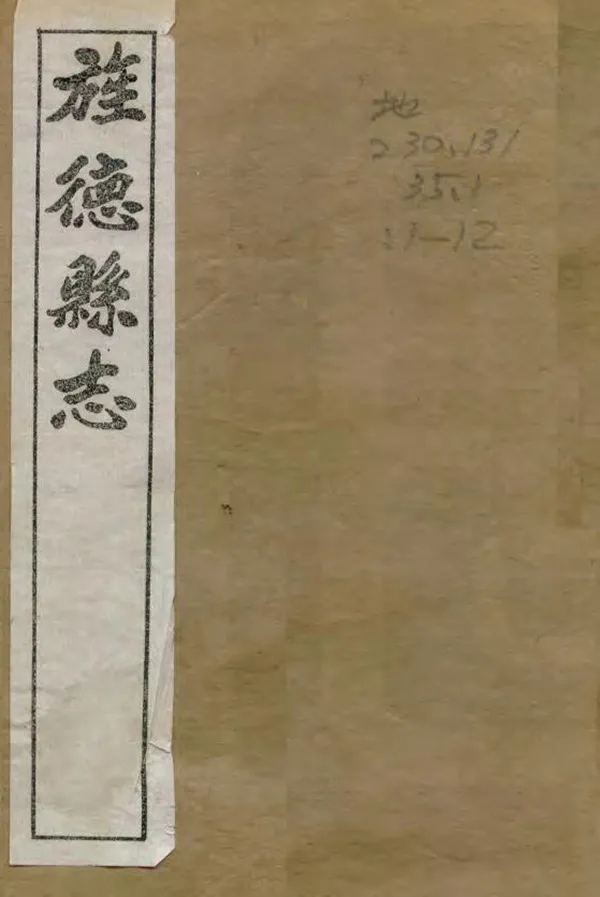 旌德縣志
地
230.131
35.1
:1-12